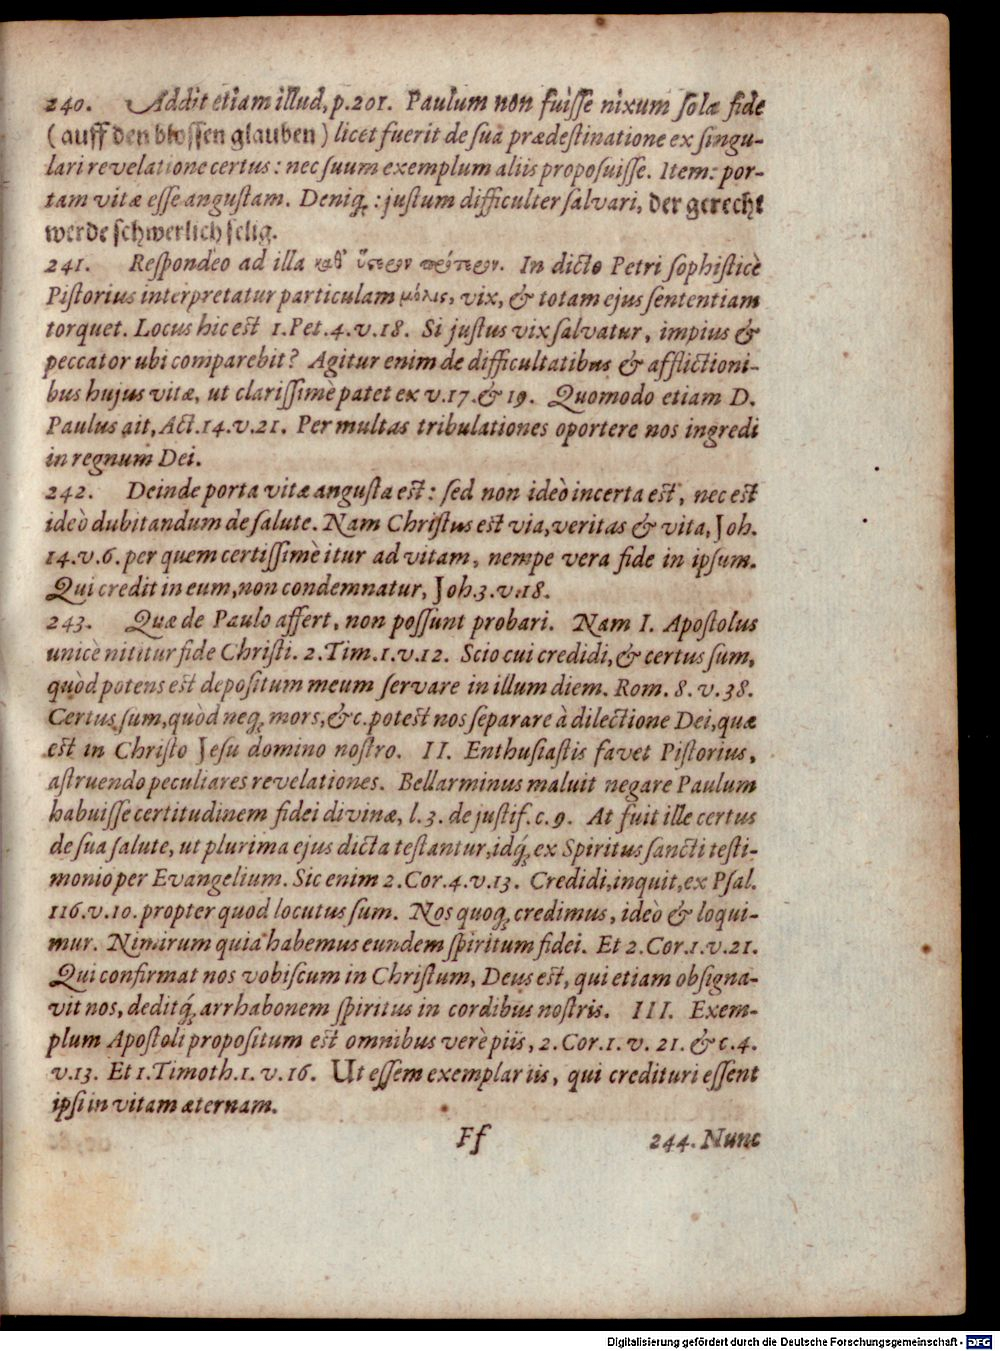 240. Addit etiam illud, p.201. Paulum non fuisse nixum solæ fide
(auff den blossen glauben) licet fuerit de sua prædestinatione ex singu-
lari revelatione certus: nec suum exemplum aliis proposuisse. Item: por-
tam vitæ esse angustam. Deniq; : justum difficulter salvari, der gerecht
werde schwerlich selig.
241. Respondeo ad illa καθ᾽ ὕςερον πρότερον. In dicto Petri sophisticè
Pistorius interpretatur particulam μόλις, vix, & totam ejus sententiam
torquet. Locus hic est 1.Pet.4.v.18. Si justus vix salvatur, impius &
peccator ubi comparebit? Agitur enim de difficultatibus & afflictioni-
bus hujus vitæ, ut clarissimè patet ex v.17.& 19. Quomodo etiam D.
Paulus ait, Act.14.v.21. Per multas tribulationes oportere nos ingredi
in regnum Dei.
242. Deinde porta vitæ angusta est: sed non ideò incerta est, nec est
ideò dubitandum de salute. Nam Christus est via, veritas & vita, Joh.
14.v.6. per quem certissimè itur ad vitam, nempe vera fide in ipsum.
Qui credit in eum, non condemnatur, Joh.3.v.18.
243. Quæ de Paulo affert, non possunt probari. Nam I. Apostolus
unicè nititur fide Christi. 2.Tim.1.v.12. Scio cui credidi, & certus sum,
quòd potens est depositum meum servare in illum diem. Rom. 8. v. 38.
Certus sum, quòd neq; mors, &c. potest nos separare à dilectione Dei, quæ
est in Christo Jesu domino nostro. II. Enthusiastis favet Pistorius,
astruendo peculiares revelationes. Bellarminus maluit negare Paulum
habuisse certitudinem fidei divinæ, l.3. de justif. c.9. At fuit ille certus
de sua salute, ut plurima ejus dicta testantur, idq́; ex Spiritus sancti testi-
monio per Evangelium. Sic enim 2.Cor.4.v.13. Credidi, inquit, ex Psal.
116.v.10. propter quod locutus sum. Nos quoq; credimus, ideò & loqui-
mur. Nimirum quia habemus eundem spiritum fidei. Et 2.Cor.1.v.21.
Qui confirmat nos vobiscum in Christum, Deus est, qui etiam obsigna-
vit nos, deditq́; arrhabonem spiritus in cordibus nostris. III. Exem-
plum Apostoli propositum est omnibus verè piis, 2.Cor.1. v. 21. & c.4.
v.13. Et 1.Timoth.1. v.16. Ut essem exemplar iis, qui credituri essent
ipsi in vitam æternam.
Ff 244. Nunc
Digitalisierung gefördert durch die Deutsche Forschungsgemeinschaft - DFG